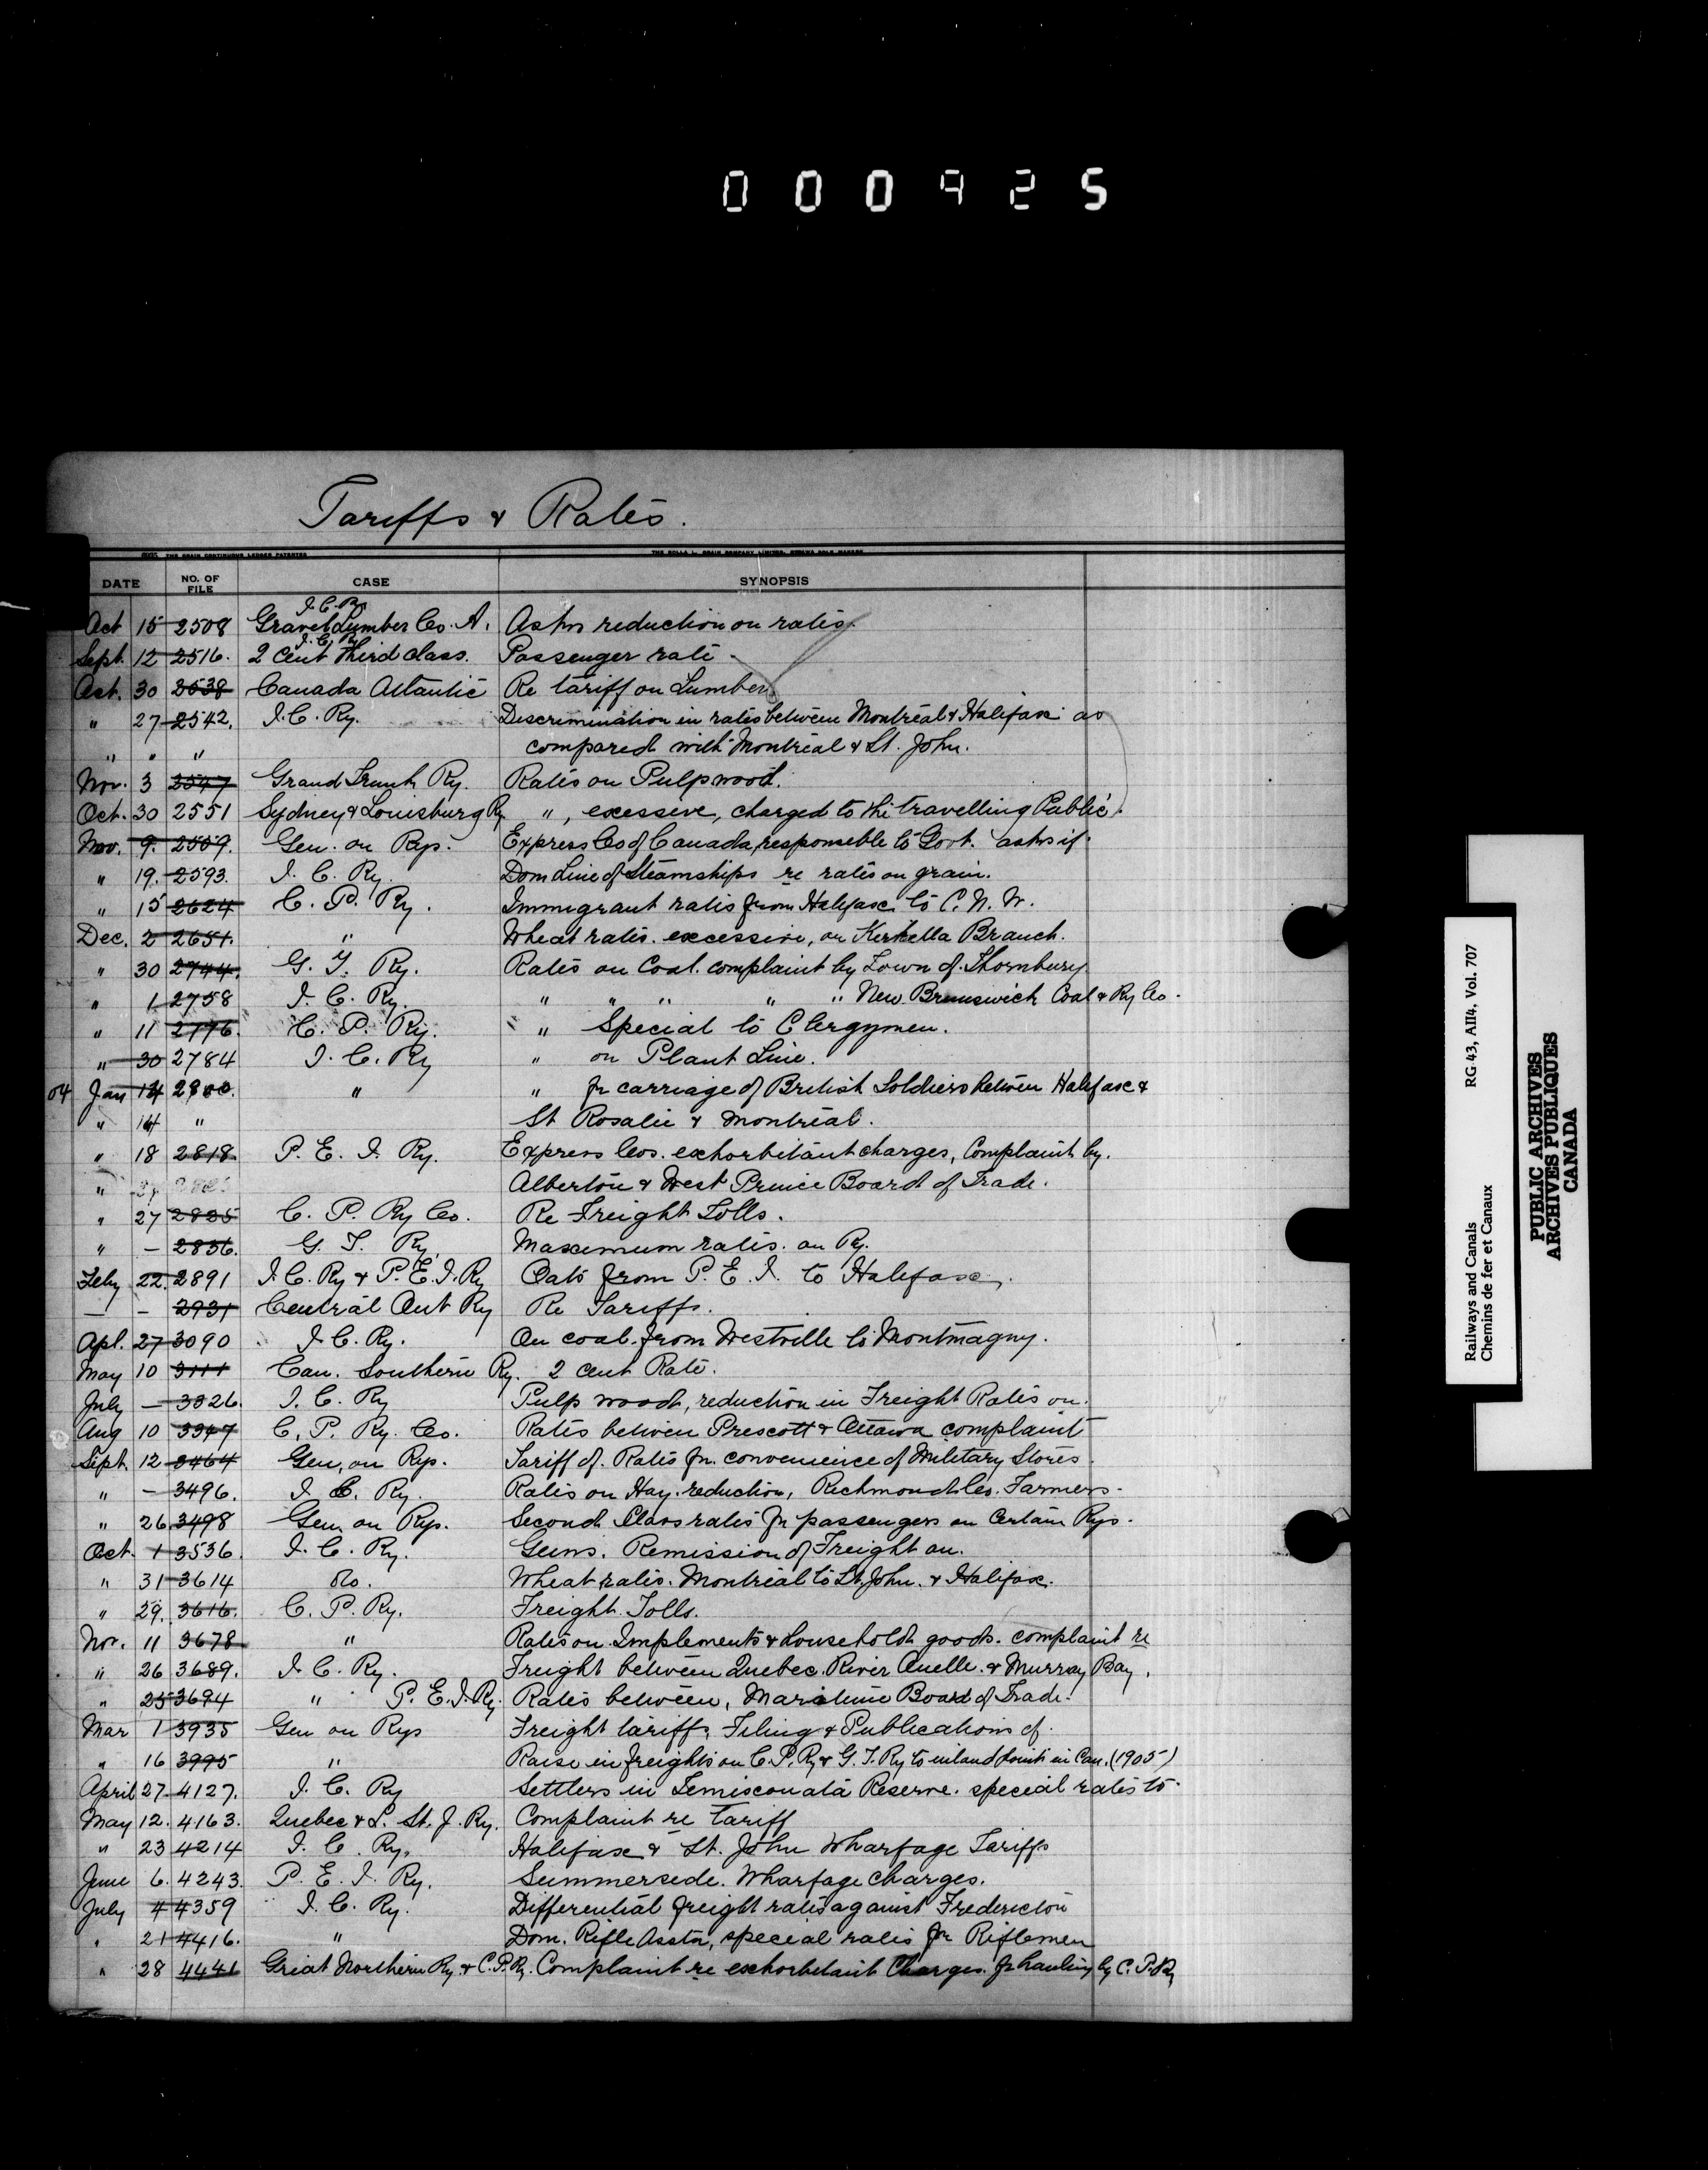 000925
Tariffs & Rates.
DATE NO. OF FILE CASE SYNOPSIS
I.C. Ry
Oct 15 2508 Gravel Lumber Co. A. Asks reduction on rates.
I.C. Ry
Sept. 12 2516. 2 cent third class. Passenger rate
Oct. 30 2538 Canada Atlantic Re tariff on Lumber
" 27 2542. I.C. Ry. Discrimination in rates between Montreal & Halifax as
" " " compared with Montreal & St. John.
Nov. 3 2547 Grand Trunk Ry. Rates on Pulpwood.
Oct. 30 2551 Sydney & Louisburg Ry ", excessive, charged to the travelling Public.
Nov. 9. 2559. Gen. on Rys. Express Cos of Canada, responsible to Govt. asks if
" 19. 2593. I. C. Ry. Dom Line of Steamships re rates on grain.
" 15 2624 C. P. Ry. Immigrant rates from Halifax to C. N. W.
Dec. 2 2651. " Wheat rates. excessive, on Kirkella Branch.
" 30 2744. G. T. Ry. Rates on Coal. complaint by Town of Thornbury
" 1 2758 I. C. Ry. " " " " " New Brunswick Coal & Ry Co.
" 11 2776. C. P. Ry. " Special to Clergymen.
" 30 2784 I. C. Ry " on Plant Line.
04 Jan 14 2800. " " for carriage of British Soldiers between Halifax &
" 14 " St Rosalie & Montreal.
" 18 2818 P. E. I. Ry. Express Cos. exhorbitant charges, Complaint by.
" 27 Alberton & West Prince Board of Trade.
" 27 2825 C. P. Ry Co. Re Freight Tolls.
" - 2836. G. T. Ry. Maximum rates. on Ry.
Feby 22. 2891 I.C. Ry & P.E.I. Ry Oats from P. E. I. to Halifax.
— - 2931 Central Ont Ry Re Tariffs.
Apl. 27 3090 I. C. Ry. On coal from Westville to Montmagny.
May 10 3111 Can. Southern Ry. 2 cent Rate.
July - 3326. I. C. Ry Pulp wood, reduction in Freight Rates on.
Aug 10 3347 C. P. Ry. Co. Rates between Prescott & Ottawa complaint
Sept. 12 3464 Gen, on Rys. Tariff of Rates for convenience of Military Stores.
" - 3496. I. C. Ry. Rates on Hay. reduction, Richmond Co. Farmers.
" 26 3498 Gen on Rys. Second Class rates for passengers on Certain Rys.
Oct. 1 3536. I. C. Ry. Guns. Remission of Freight on.
" 31 3614 do. Wheat rates. Montreal to St. John. & Halifax.
" 29. 3616. C. P. Ry. Freight Tolls.
Nov. 11 3678 " Rates on Implements & household goods. complaint re
" 26 3689. I. C. Ry. Freight between Quebec. River Ouelle. & Murray Bay.
" 25 3694 " P.E.I. Ry. Rates between, Maritime Board of Trade.
Mar 1 3935 Gen on Rys Freight tariffs, Filing & Publications of.
" 16 3995 " Raise in freights on C.P. Ry & G.T. Ry to inland points in Can. (1905)
April 27. 4127. I. C. Ry Settlers in Temisconata Reserve. special rates to.
May 12. 4163. Quebec & L. St. J. Ry. Complaint re tariff
" 23 4214 I. C. Ry. Halifax & St. John Wharfage Tariffs
June 6. 4243. P. E. I. Ry. Summerside. Wharfage charges.
July 4 4359 I. C. Ry. Differential freight rates against Fredericton
" 21 4416. " Dom. Rifle Assn, special rates for Riflemen
" 28 4441 Great Northern Ry. & C.P. Ry. Complaint re exhorbitant Charges. for hauling by C. P. Ry
RG 43, AII4, Vol. 707
Railways and Canals
Chemins de fer et Canaux
PUBLIC ARCHIVES
ARCHIVES PUBLIQUES
CANADA